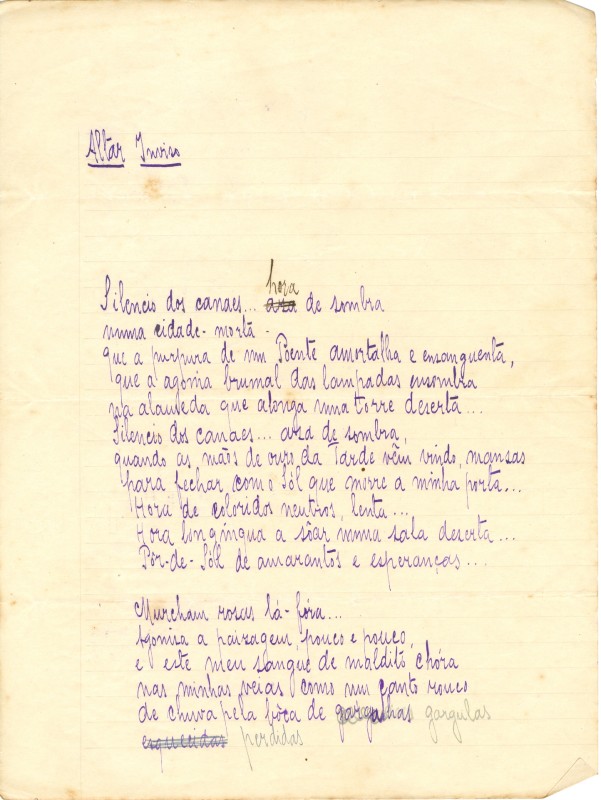 Altar Inviso
Silencio dos canaes... hora de sombra
numa cidade-morta -
que a purpura de um Poente amortalha e ensanguenta,
que a agonia brumal das lampadas ensombra
na alameda que alonga uma torre deserta...
Silencio dos canaes... asa de sombra,
quando as mãos de ouro da Tarde vêm vindo, mansas
para fechar com o Sól que morre a minha porta...
Hora de coloridos neutros, lenta...
Hora longinqua a sôar numa sala deserta...
Pôr-de-Sól de amarantos e esperanças...
Murcham rosas lá-fóra...
Agonisa a paizagem pouco e pouco,
e este meu sangue de maldito chóra
nas minhas veias como um canto rouco
de chuva pela bôca de gargulas
esquecidas perdidas